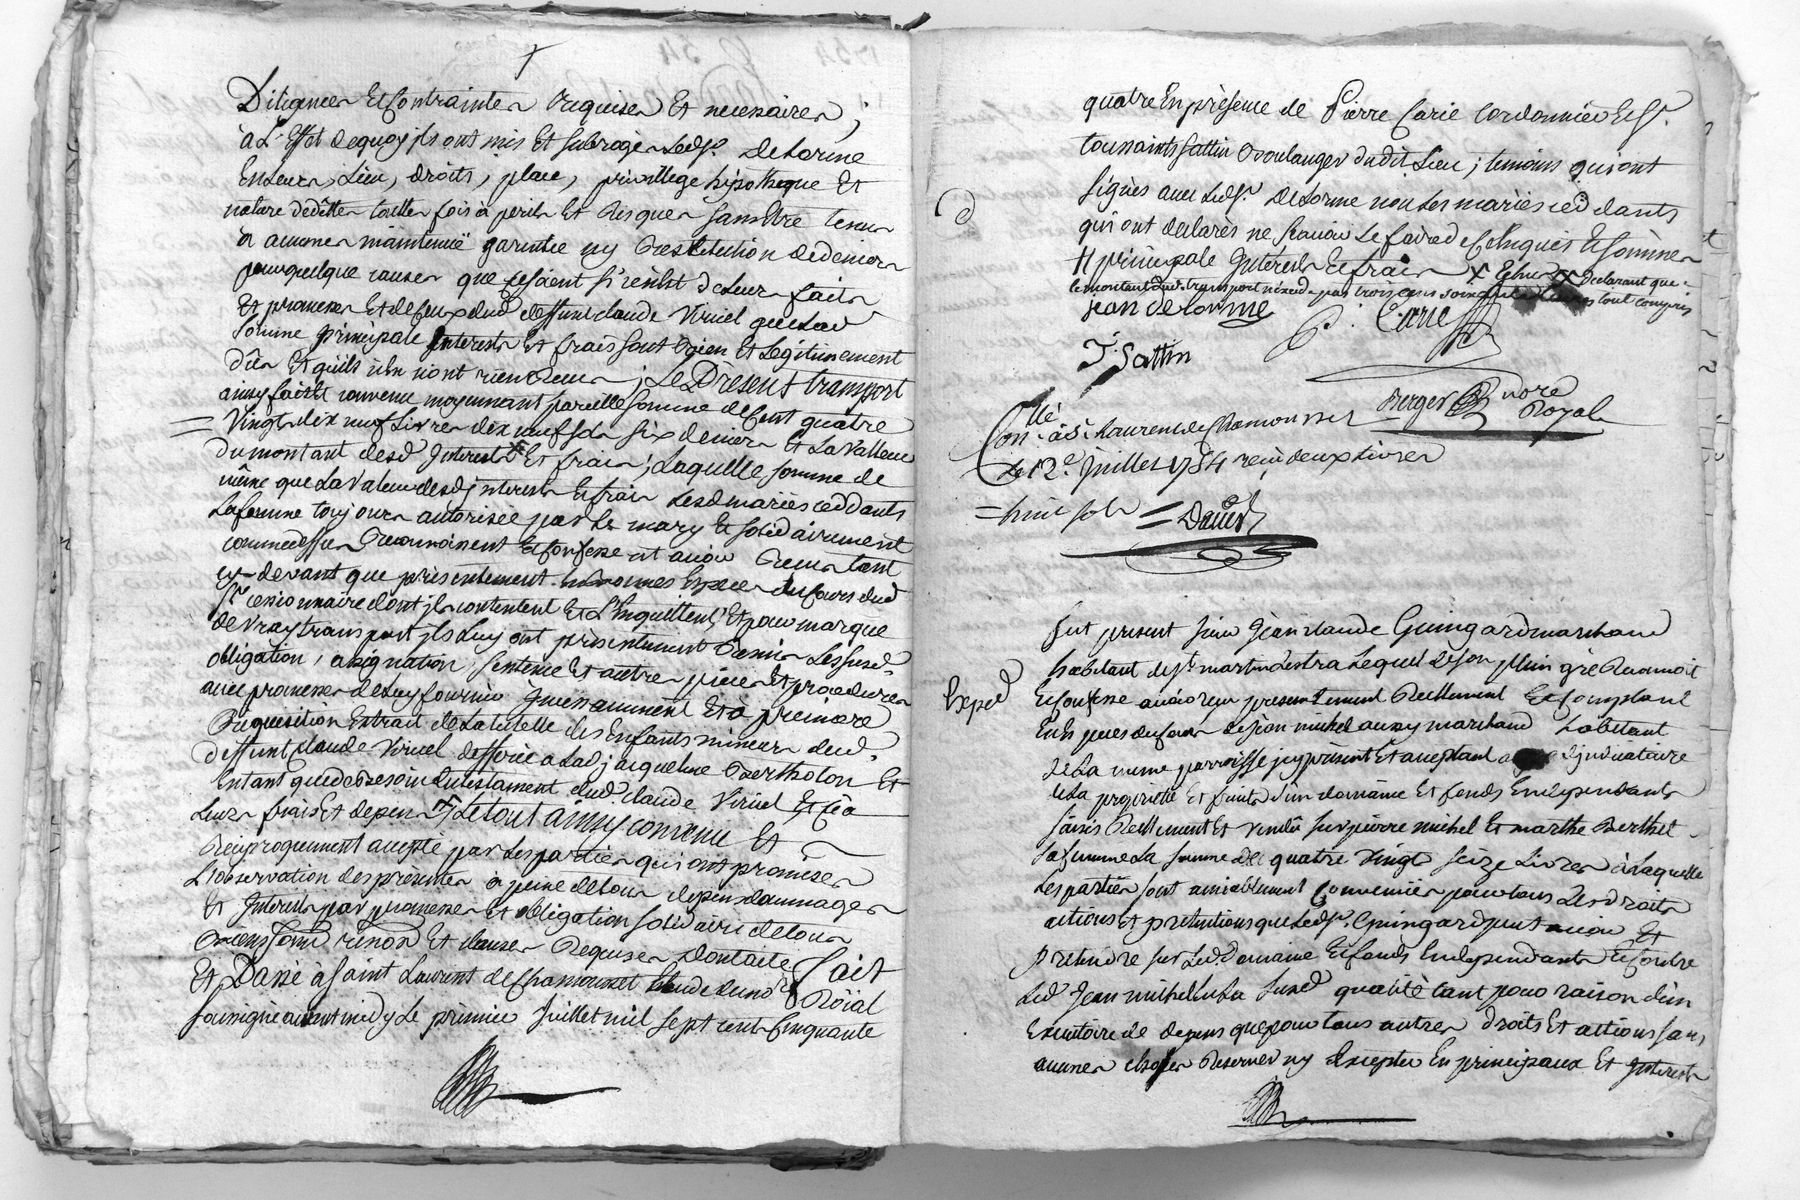 Diligences Et Contraintes Requises Et necessaires ;
à L'Effet dequoy ils ont mis Et subrogés Ledsr. Delorme
En Leurs Lieu, droits, place, privillege hipotheque Et
nature de dettes touttes fois à perils Et Risques sans Etre tenus
à aucunes maintenüe garentie ny Restitution de deniers
pour quelque cause que ce soient si ce n'est de Leurs faits
Et promesses Et de ceux dud deffunt claude Viricel que Lad
somme principale Interests Et frais sont bien Et Legitimement
dûs Et qu'ils n'en n'ont rien Receus ; Le Present transport
ainsy fait Et convenu moyennant pareille somme de Cent quatre
Vingt dix neuf Livres dix neuf sols six deniers Et La Valleur
du montant desd Interests Et frais ; Laquelle somme de
même que La Valeur desd interests Et frais Lesd mariés ceddants
La femme toujours autorisée par Le mary Et solidairement
comme dessus Reconnoissent Et Confessent avoir Receus tant
cy-devant que présentement En bonnes Especes du Cours dud
sr. cessionnaire dont ils contentent Et L'En quittent, Et pour marque
de vray transport ils Luy ont présentement Remis Les susd
obligation, assignation, sentence Et autres pieces Et procedures
avec promesses de Luy fournir Incessamment Et à premiere
Requisition Extrait de La tutelle des Enfants mineurs dud.
deffunt claude Viricel defferée a Lad jacqueline Bertholon Et
En tant que de besoin du testament dud. claude Viricel Et ce à
Leurs frais Et depens ; Le tout ainsy convenu Et
Reciproquement accepté par Les parties qui ont promises
L'observation des presentes à peine de tous depens dommages
Et Interests par promesses Et obligation solidaire de tous
Biens sous renon Et clauses Requises dont acte Fait
Et Passé à Saint Laurent de Chamousset Etude du nore Roïal
soussigné avant midy Le premier Juillet mil sept cents Cinquante
quatre En présence de Pierre Carie Cordonnier Et sr.
toussaints sattin Boulanger dudit Lieu ; temoins qui ont
signés avec Ledsr. Delorme non Les mariés ceddants
qui ont declarés ne scavoir Le faire de ce Enquis Et sommés
principale Interests Et frais X Declarant que
le montant dud. transport n'excede pas trois cens soixante Livres tout compris
jean delorme P. Carie
T. Sattin
Berger nore Royal
Conllé à St. Laurent de Chamousset
Le 12e. Juillet 1754 reçu deux Livres
= huit sols = David
fut present sieur Jean claude Guingard marchand
habitant de st. martin Lestra Lequel de son plein gré Reconnoit
Exped
Et Confesse avoir reçu presentement Reellement Et Comptant
En Especes du Cours de jean michel aussy marchand habitant
de La meme parroisse icy présent Et acceptant adjudicataire
de La propriété Et fruits d'un domaine Et fonds En dependants
saisis Reellement Et vendus sur pierre michel Et marthe Berthet
sa femme La somme de quatre Vingt seize Livres à Laquelle
Les parties sont amiablement Convenües pour tous Les droits
actions Et prétentions que Ledsr. Guingard peut avoir Et
pretendre sur Led. Domaine Et fonds En dependants Et Contre
Led Jean michel En La susd qualité tant pour raison d'un
Executoire de depens que pour tous autres droits Et actions sans
aucunes choses Reserver ny Excepter En principaux Et Interests